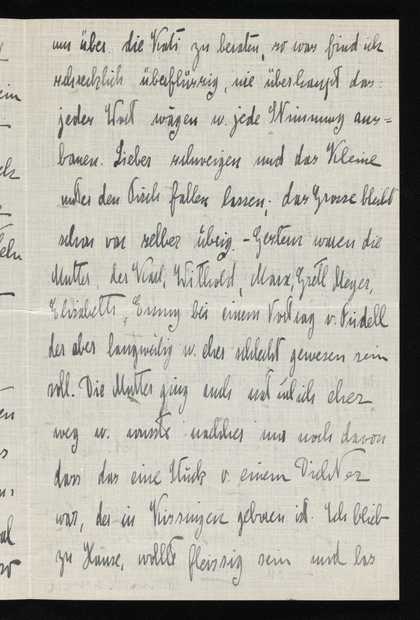 um über die Kati zu beraten, so was find ich
schrecklich überflüssig, wie überhaupt das
jedes Wort wägen u. jede Stimmung aus=
bauen. Lieber schweigen und das Kleine
unter den Tisch fallen lassen; das Grosse bleibt
schon von selber übrig. - Gestern waren die
Mutter, der Karl, Witthold, Marx, Gretl Meyer,
Elisabeth, Emmy bei einem Vortrag v.
der aber langweilig u. eher schlecht gewesen sein
soll. Die Mutter ging auch natürlich eher
weg u. wusste nachher nur noch davon
dass das eine Stück v. einem Dichter
war, der in Kissingen geboren ist. Ich blieb
zu Hause, wollte fleissig sein und las
ein